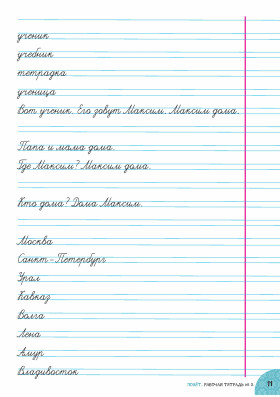 ученик
учебник
тетрадка
ученица
Вот ученик. Его зовут Максим. Максим дома.
Папа и мама дома.
Где Максим? Максим дома.
Кто дома? Дома Максим.
Москва
Санкт-Петербург
Урал
Кавказ
Волга
Лена
Амур
Владивосток
РАБОЧАЯ ТЕТРАДЬ № 3
11